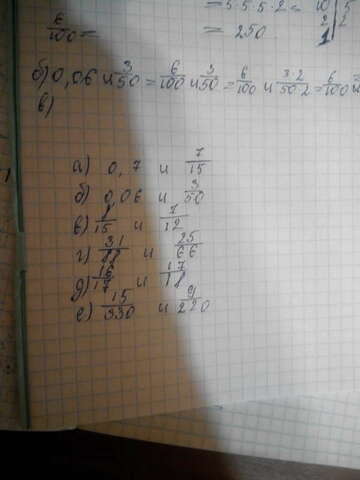 = 5·5·5·2 = 10 | 5
6/100 = = 250. 2 | 2
1
б) 0,06 и 3/50 = 6/100 и 3/50 = 6/100 и 3·2/50·2 = 6/100
в)
а) 0,7 и 7/15
б) 0,06 и 3/50
в) 8/15 и 7/12
г) 31/88 и 25/66
д) 16/17 и 17/18
е) 15/330 и 9/220